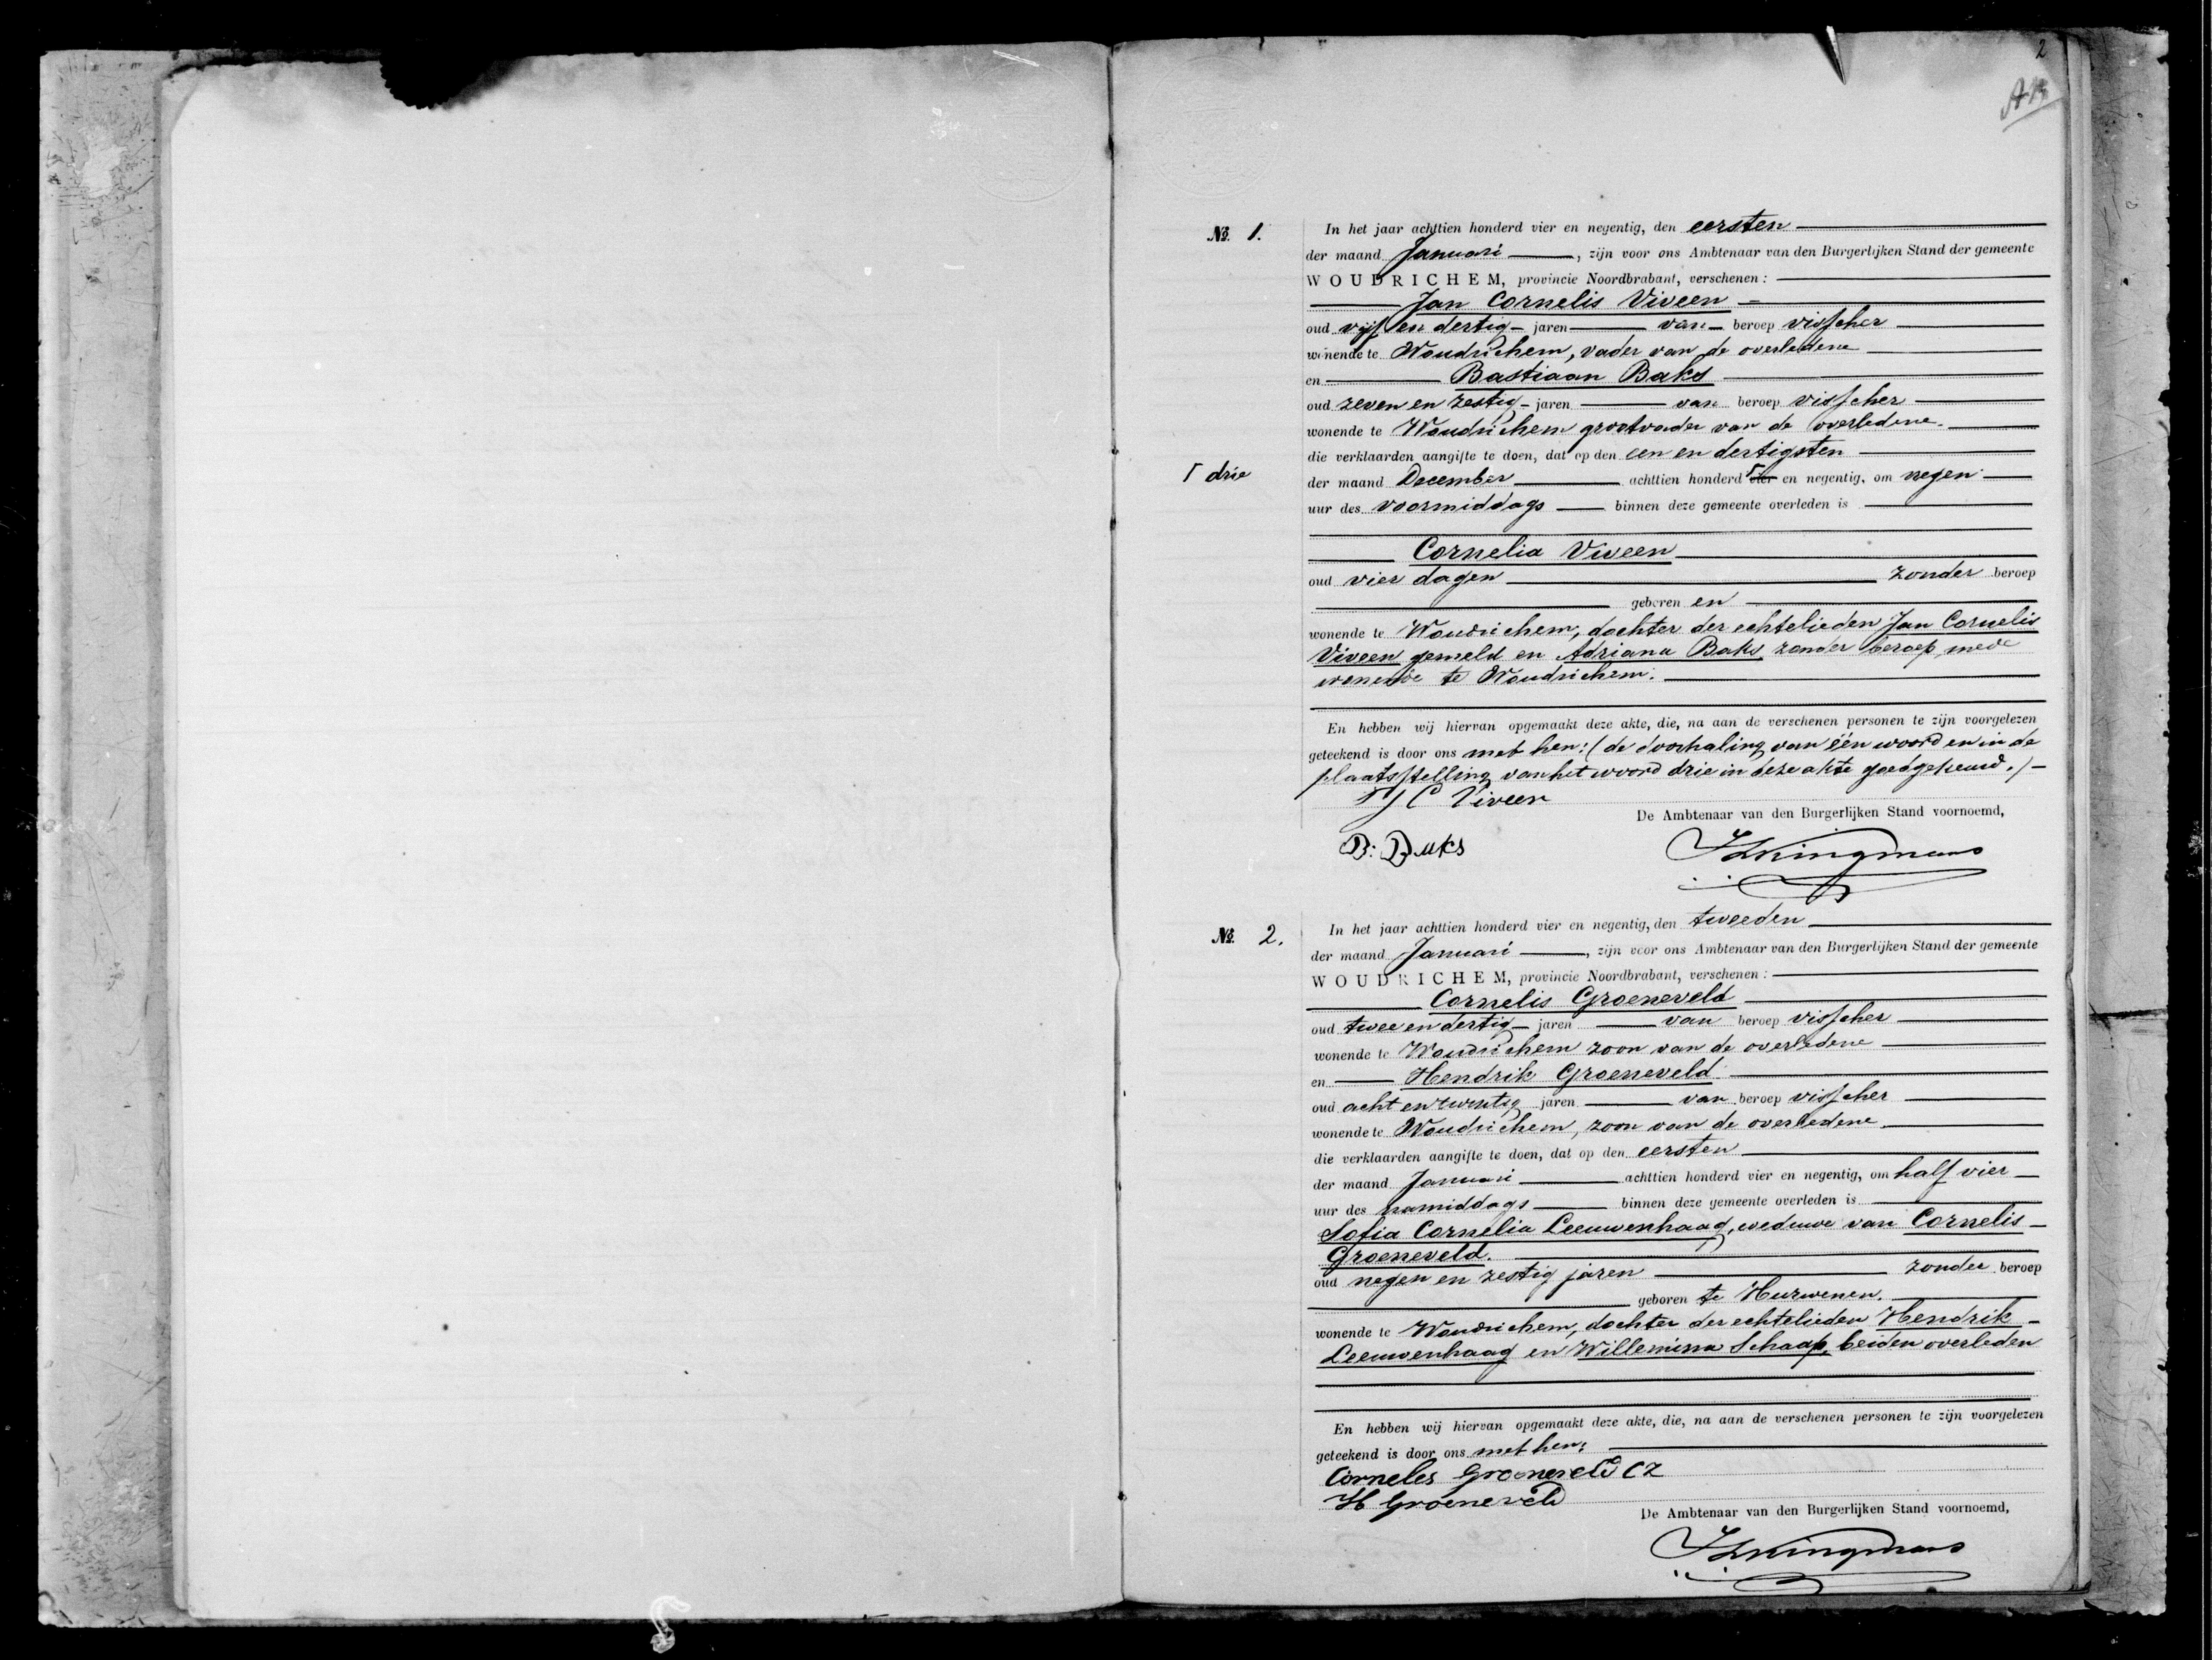 2
№ 1.
In het jaar achttien honderd vier en negentig, den eersten
der maand Januari, zijn voor ons Ambtenaar van den Burgerlijken Stand der gemeente
WOUDRICHEM, provincie Noordbrabant, verschenen:
Jan Cornelis Viveen
oud vijf en dertig jaren van beroep visscher
wonende te Woudrichem, vader van de overledene
en Bastiaan Baks
oud zeven en zestig jaren van beroep visscher
wonende te Woudrichem grootvader van de overledene.
die verklaarden aangifte te doen, dat op den een en dertigsten
┌ drie
der maand December achttien honderd ┌ vier en negentig, om negen
uur des voormiddags binnen deze gemeente overleden is
Cornelia Viveen
oud vier dagen zonder beroep
geboren en
wonende te Woudrichem, dochter der echtelieden Jan Cornelis
Viveen gemeld en Adriana Baks zonder beroep mede
wonende te Woudrichem.
En hebben wij hiervan opgemaakt deze akte, die, na aan de verschenen personen te zijn voorgelezen
geteekend is door ons met hen: (de doorhaling van één woord en in de
plaatsstelling van het woord drie in deze akte goedgekeurd.)
J C Viveen
De Ambtenaar van den Burgerlijken Stand voornoemd,
B: Baks
№ 2.
In het jaar achttien honderd vier en negentig, den tweeden
der maand Januari, zijn voor ons Ambtenaar van den Burgerlijken Stand der gemeente
WOUDRICHEM, provincie Noordbrabant, verschenen:
Cornelis Groeneveld
oud twee en dertig jaren van beroep visscher
wonende te Woudrichem zoon van de overledene
en Hendrik Groeneveld
oud acht en twintig jaren van beroep visscher
wonende te Woudrichem, zoon van de overledene
die verklaarden aangifte te doen, dat op den eersten
der maand Januari achttien honderd vier en negentig, om half vier
uur des namiddags binnen deze gemeente overleden is
Sofia Cornelia Leeuwenhaag, weduwe van Cornelis
Groeneveld.
oud negen en zestig jaren zonder beroep
geboren te Hurwenen.
wonende te Woudrichem, dochter der echtelieden Hendrik
Leeuwenhaag en Willemina Schaap, beiden overleden
En hebben wij hiervan opgemaakt deze akte, die, na aan de verschenen personen te zijn voorgelezen
geteekend is door ons met hen:
Corneles Groeneveld CZ
H Groeneveld
De Ambtenaar van den Burgerlijken Stand voornoemd,